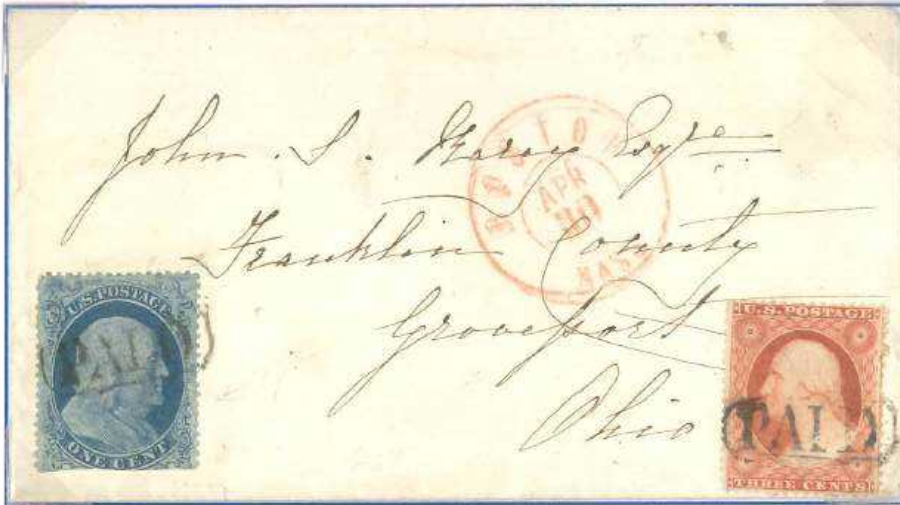 John . S. Esqre
Franklin County
Groveport
Ohio
BOSTON
APR
30
MAS
U.S. POSTAGE
PAID
ONE CENT
U.S. POSTAGE
PAID
THREE CENTS